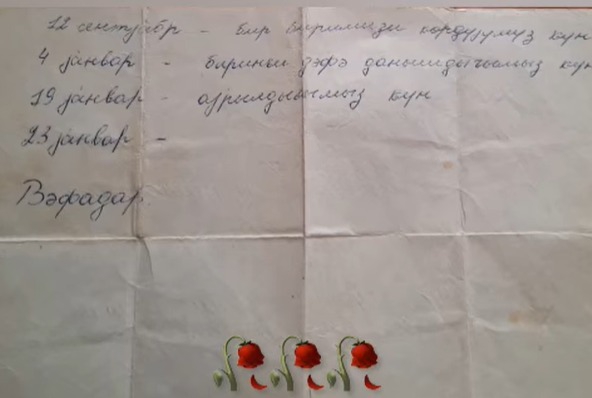 12 сентјабр - бир биримизи ҝөрдүјүмүз ҝүн
4 јанвар - биринҹи дәфә данышдығымыз ҝүн
19 јанвар - ајрылдығымыз ҝүн
23 јанвар -
Вәфадар